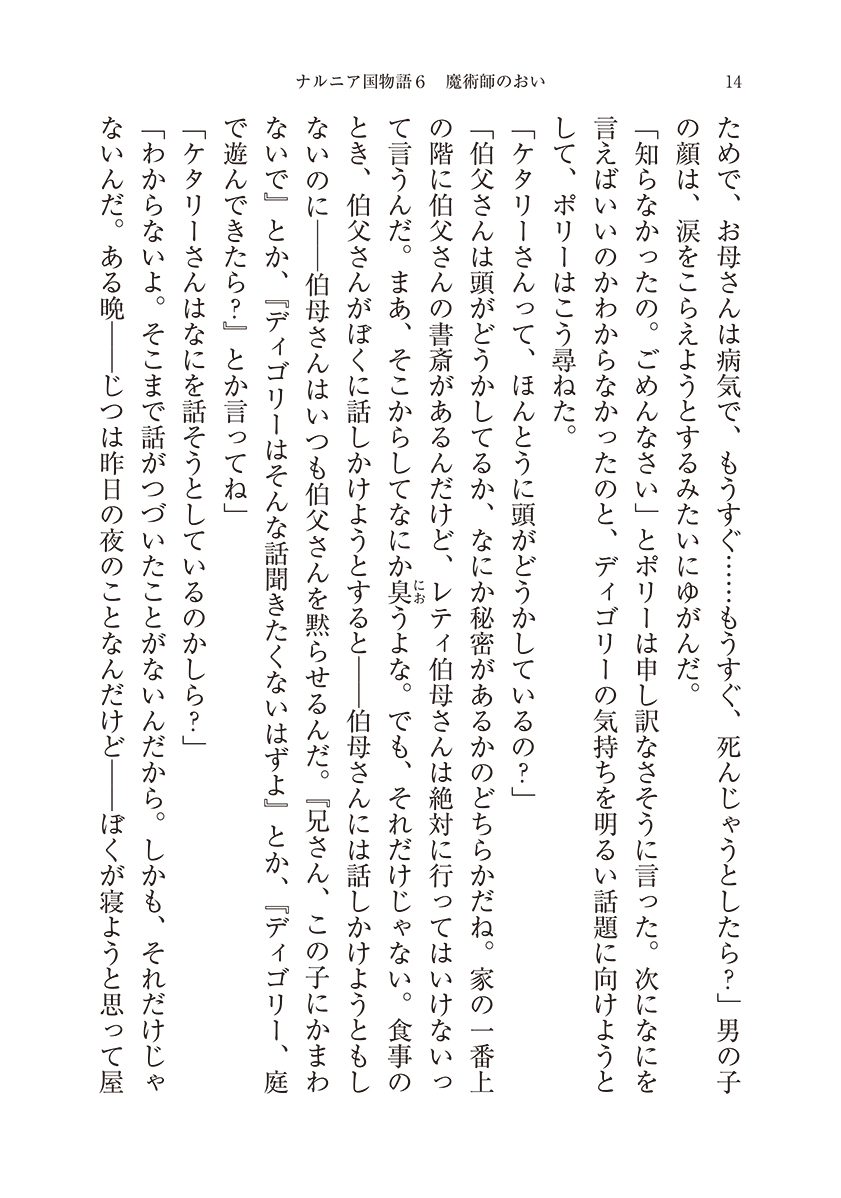 ナルニア国物語６　魔術師のおい
14
ためで、お母さんは病気で、もうすぐ……もうすぐ、死んじゃうとしたら？」男の子
の顔は、涙をこらえようとするみたいにゆがんだ。
「知らなかったの。ごめんなさい」とポリーは申し訳なさそうに言った。次になにを
言えばいいのかわからなかったのと、ディゴリーの気持ちを明るい話題に向けようと
して、ポリーはこう尋ねた。
「ケタリーさんって、ほんとうに頭がどうかしているの？」
「伯父さんは頭がどうかしてるか、なにか秘密があるかのどちらかだね。家の一番上
の階に伯父さんの書斎があるんだけど、レティ伯母さんは絶対に行ってはいけないっ
て言うんだ。まあ、そこからしてなにか臭うよな。でも、それだけじゃない。食事の
とき、伯父さんがぼくに話しかけようとすると――伯母さんには話しかけようともし
ないのに――伯母さんはいつも伯父さんを黙らせるんだ。『兄さん、この子にかまわ
ないで』とか、『ディゴリーはそんな話聞きたくないはずよ』とか、『ディゴリー、庭
で遊んできたら？』とか言ってね」
「ケタリーさんはなにを話そうとしているのかしら？」
「わからないよ。そこまで話がつづいたことがないんだから。しかも、それだけじゃ
ないんだ。ある晩――じつは昨日の夜のことなんだけど――ぼくが寝ようと思って屋
にお